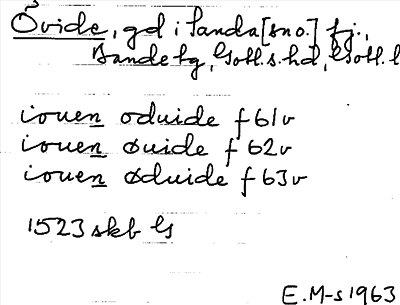 Övide, gd i Sanda [sno.] fg.,
Bande fg, Gotl. s. hd, Gotl. l
iouen oduide f 61v
iouen øuide f 62v
iouen øduide f 63v
1523 skb G
E. M-s 1963